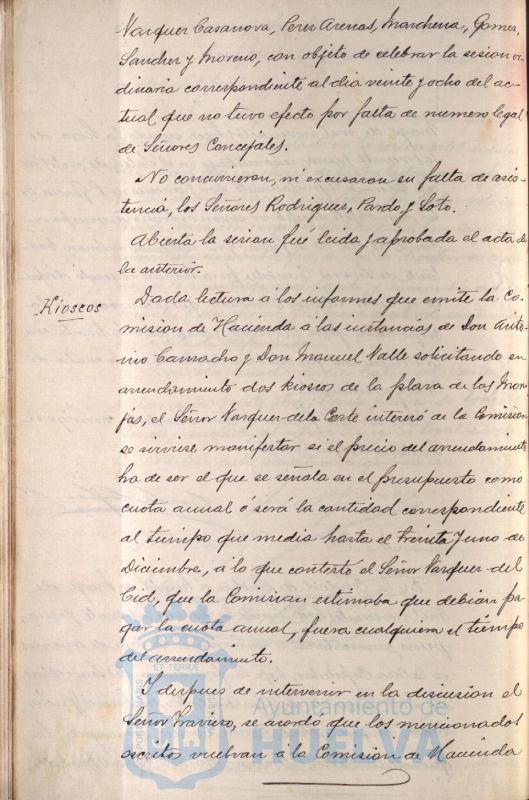 Vazquez Casanova, Perez Arenas, Marchena, Gomez,
Sanchez y Moreno, con objeto de celebrar la sesion or-
dinaria correspondiente al dia veinte y ocho del ac-
tual que no tuvo efecto por falta de numero legal
de Señores Concejales.
No concurrieron, ni excusaron su falta de asis-
tencia, los Señores Rodriguez, Pardo y Soto.
Abierta la sesion fué leida y aprobada el acta de
la anterior.
Kioscos
Dada lectura á los informes que emite la Co-
mision de Hacienda á las instancias de Don Anto-
nio Camacho y Don Manuel Valle solicitando en
arrendamiento dos kioscos de la plaza de las Mon-
jas, el Señor Vazquez de la Corte interesó de la Comision
se sirviese manifestar si el precio del arrendamiento
ha de ser el que se señala en el presupuesto como
cuota anual ó será la cantidad correspondiente
al tiempo que media hasta el treinta y uno de
Diciembre, á lo que contestó el Señor Vazquez del
Cid, que la Comision estimaba que debian pa-
gar la cuota anual, fuera cualquiera el tiempo
del arrendamiento.
Y despues de intervenir en la discusion el
Señor Travieso, se acordó que los mencionados
escritos vuelvan á la Comision de Hacienda
PORTUS MARIS
ET TERRÆ
Ayuntamiento de
HUELVA